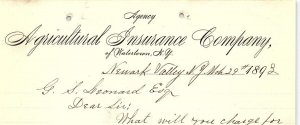 Agency
Agricultural Insurance Company,
of Watertown, N.Y.
Newark Valley N.Y. Mch 29th 1892
G. S. Leonard Esq
Dear Sir:
What will you charge for